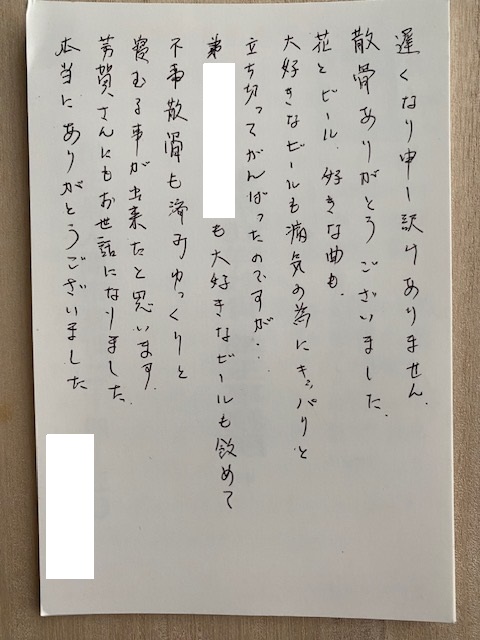 遅くなり申し訳けありません.
散骨ありがとうございました.
花とビール. 好きな曲も.
大好きなビールも病気の為にキッパリと
立ち切ってがんばったのですが..
弟 も大好きなビールも飲めて
不事散骨も済みゆっくりと
寝むる事が出来たと思います.
芳賀さんにもお世話になりました.
本当にありがとうございました